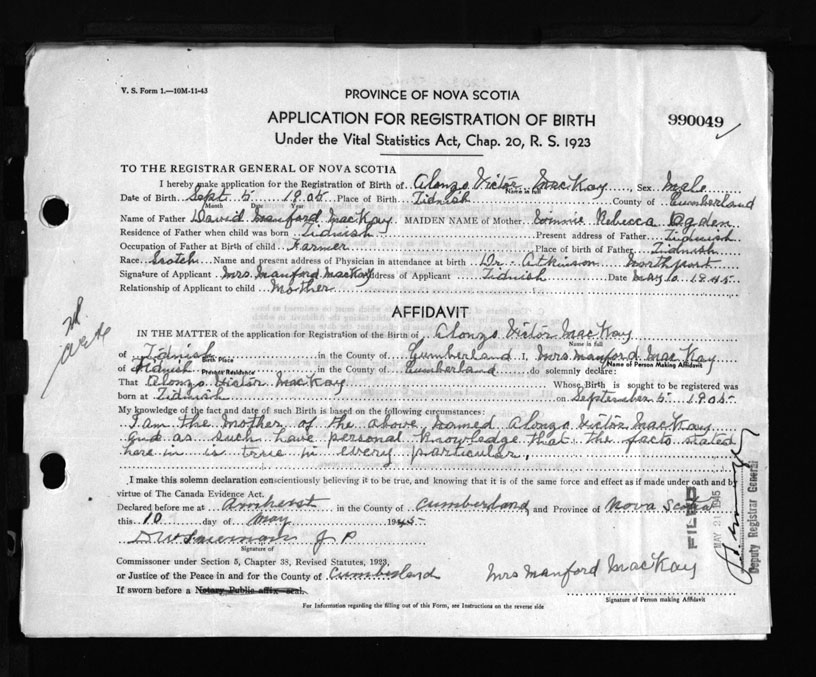 V. S. Form 1.—10M-11-43
PROVINCE OF NOVA SCOTIA
APPLICATION FOR REGISTRATION OF BIRTH
990049
Under the Vital Statistics Act, Chap. 20, R. S. 1923
TO THE REGISTRAR GENERAL OF NOVA SCOTIA
I hereby make application for the Registration of Birth of Alonzo Victor MacKay, Sex Male
Name in full
Date of Birth Sept 5 1905 Place of Birth Tidnish County of Cumberland
Month Date Year
Name of Father David Manford MacKay MAIDEN NAME of Mother Rebecca Ogden
Residence of Father when child was born Tidnish Present address of Father Tidnish
Occupation of Father at Birth of child Farmer Place of birth of Father Tidnish
Race Scotch Name and present address of Physician in attendance at birth Dr. Atkinson Northport
Signature of Applicant Mrs Manford MacKay Address of Applicant Tidnish Date May 10 1945
Relationship of Applicant to child Mother
AFFIDAVIT
IN THE MATTER of the application for Registration of the Birth of Alonzo Victor MacKay
Name in full
of Tidnish in the County of Cumberland I, Mrs Manford MacKay
Birth Place Name of Person Making Affidavit
of in the County of Cumberland do solemnly declare:
Present Residence
That Alonzo Victor MacKay Whose Birth is sought to be registered was
born at Tidnish on September 5 1905
My knowledge of the fact and date of such Birth is based on the following circumstances:
I am the Mother of the above named Alonzo Victor MacKay
and as such have personal knowledge that the facts stated
here in is true in every particular.
I make this solemn declaration conscientiously believing it to be true, and knowing that it is of the same force and effect as if made under oath and by
virtue of The Canada Evidence Act.
Declared before me at Amherst in the County of Cumberland and Province of Nova Scotia
this 10 day of May 1945
J P
Signature of
Commissoner under Section 5, Chapter 38, Revised Statutes, 1923,
or Justice of the Peace in and for the County of Cumberland
Mrs Manford MacKay
If sworn before a Notary Public affix seal.
Signature of Person making Affidavit
For Information regarding the filling out of this Form, see Instructions on the reverse side
FILED
MAY 21 1945
Deputy Registrar General